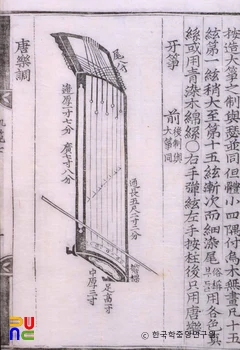 按造大箏之制與瑟並同但體小四隅付爲木無畫凡十五
絃第一絃稍大至第十五絃漸次而細染尾 用各色眞
絲或用靑染木綿絲○右手彈絃左手按柱後只用唐樂
牙箏 前後制與
大箏同
尾穴
通長五尺二寸三分
邊厚一寸七分
廣七寸八分
中厚三寸
足高寸
唐樂調
© 한국학중앙연구원